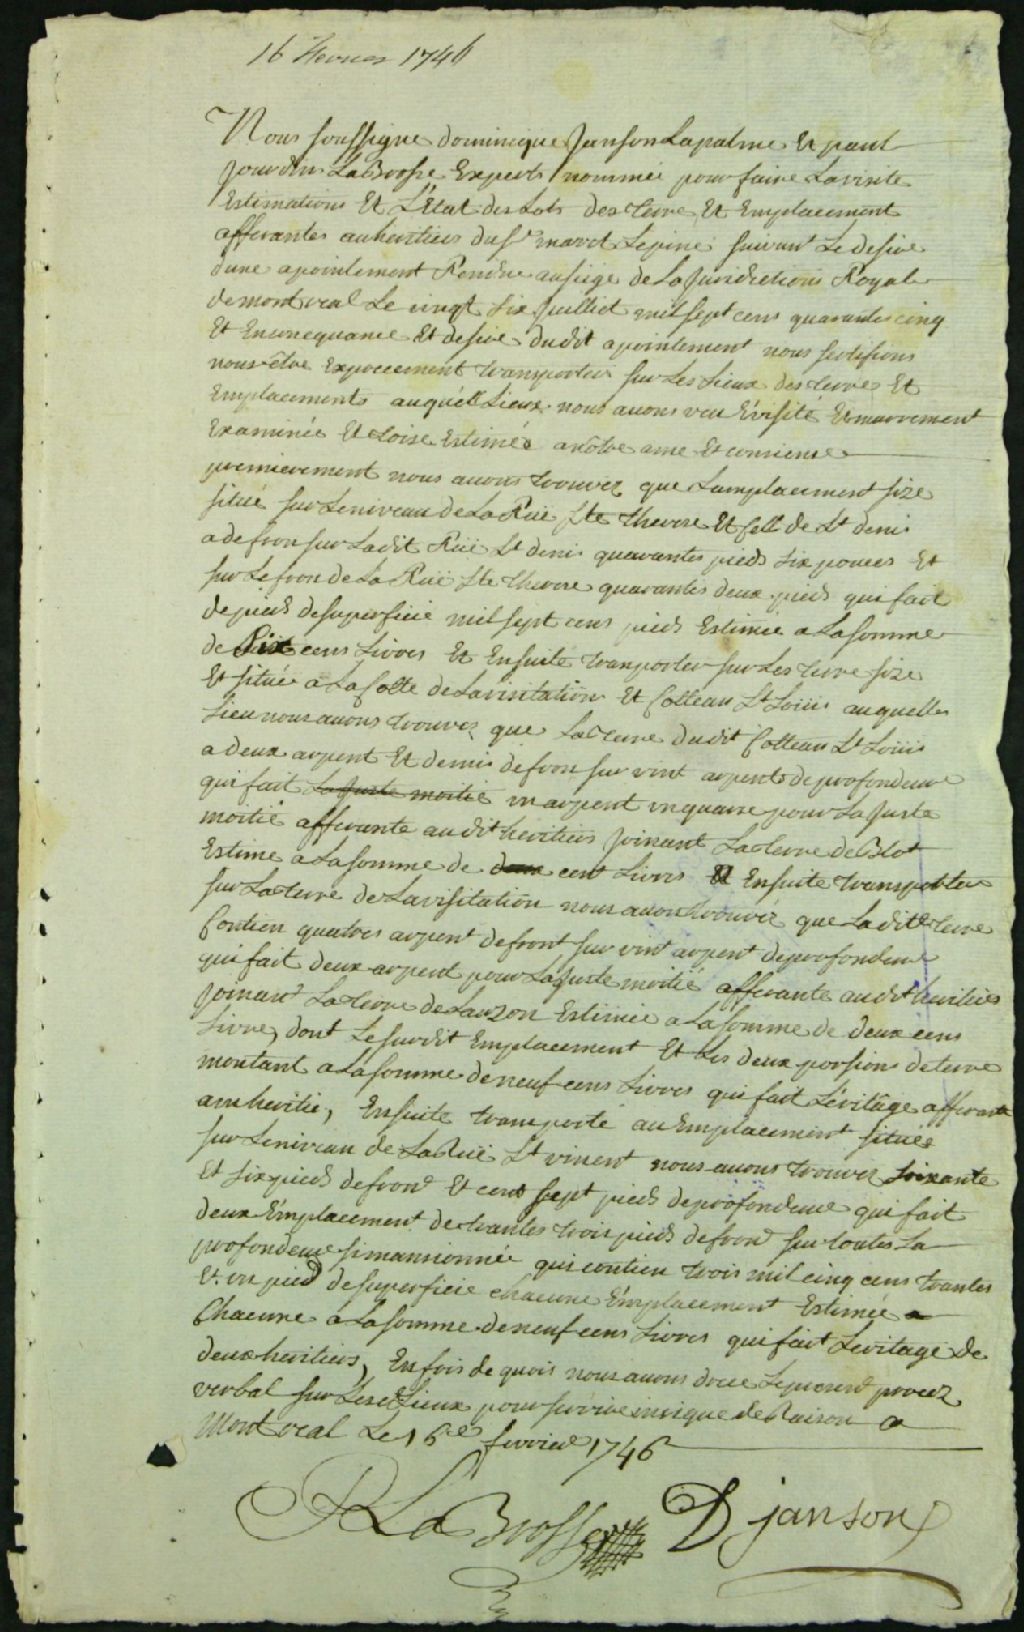 16 fevrier 1746
Nous soussigne dominique Janson Lapalme Et paul
Jourdin LaBrosse Experts nommée pour faire La visite
Estimations Et L'Etat des Lots des terre Et Emplacement
afferantes au heritiers du Sr maret Lepine suivant Le desire
dune apointement Rendue au siege de La Juridictions Royal
de montreal Le vingt six Juilliet mil sept cens quarantes cinq
Et En consequance Et desire dudit apointement nous sertifions
nous être Expressement transporter sur Les Lieux des terres Et
Emplacements auquels Lieux nous avons veu Evisité Et murement
Examinée Et toise Estimée a nôtre ame Et consiense
premierement nous avons trouvez que Lamplacement size
situé sur Le niveau de La Ruë Ste therese Et Sell de St denis
a de fron sur Ladit Ruë St denis quarantes pieds six pouces Et
sur Le fron de La Ruë Ste therese quarantes deux pieds qui fait
de pieds de superficie mil sept cens pieds Estimée a La somme
de six cens Livres Et Ensuite transporter sur Les terre size
Et situé a La Cotte de La visitation Et Cotteau St Loüis auquelles
Lieu nous avons trouvez que La terre dudit Cotteau St Loüis
a deux arpent Et demis de fron sur vint arpents de profondeur
qui fait La Juste moitié un arpent un quare pour La Juste
moitié afferante audit heritiers Joinant La terre de Blot
Estime a La somme de deux cent Livres Et Ensuite transporter
sur La terre de La visitation nous avons trouvéz que Laditte terre
Contien quatres arpent de front sur vint arpent de profondeur
qui fait deux arpent pour La Juste moitié afferante audit heritiers
Joinant La terre de Lauzon Estimée a La somme de deux cens
Livre, dont Le susdit Emplacement Et Les deux porsions de terre
montant a La somme de neuf cens Livres qui fait L'éritage afferante
au heritie, Ensuite transporté au Emplacement située
sur Le niveau de La Ruë St vincent nous avons trouvez soixante
Et six pieds de fron Et cent sept pieds de profondeur qui fait
deux Emplacement de trantes trois pieds de fron sur toutes La
profondeur simansionnée qui contien trois mil cinq cens trantes
Et un pied de superficie chacune Emplacement Estimée a
Chacune a La somme de neuf cens Livres qui fait Leritage de
deux heritiers, En fois de quois nous avons dresse Le present procez
verbal sur Lesdt Lieux pour servire ce que de Raison a
Mont real Le 16e fevrier 1746
PLaBrosse Djanson